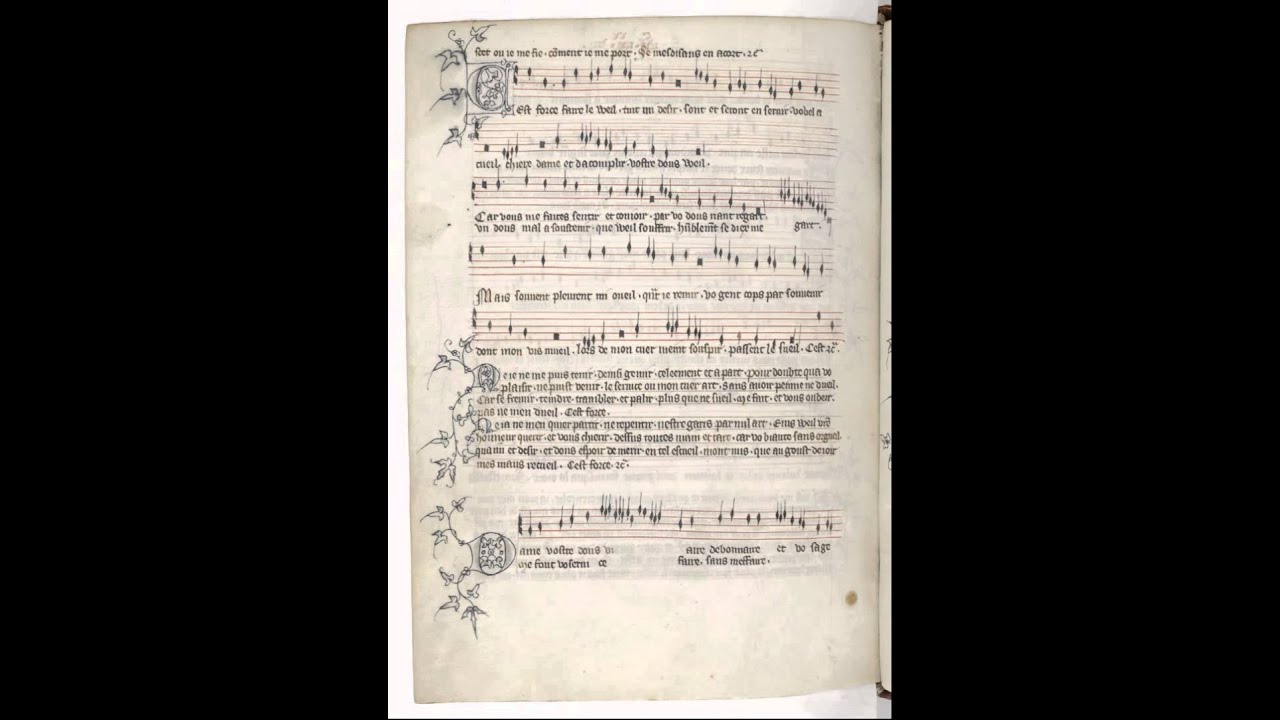 sect ou ie me fie · cõment ie me port · Se mesdisans en acort · ⁊c̃
C Est force faire le weil · tuit mi desir · sont et seront en seruir · vo bel a
cueil · chiere dame et dacomplir · vostre dous weil ·
Car vous me faites sentir et conioir · par vo dous riant regart ·
vn dous mal a soustenir · que weil souffrir · hũblemt̃ se diex me gart ·
Mais souuent pleurent mi oueil · qũt ie remir · vo gent cops par souuenir
dont mon vis mueil · lors de mon cuer uiennt souspir · passent le sueil · Cest ⁊c̃ ·
De ie ne me puis tenir · demsi genir · celeement et a part · pour doubte qua vo
plaisir · ne puist venir · le seruice ou mon cuer art · sans auoir penme ne dueil ·
Car se fremir · teindre · trambler · et palir · plus que ne sueil · me fait · et vous oubeir ·
pas ne men dueil · Cest force ·
Ne ia ne men quier partir · ne repentir · nestre garis par nul art · Eins weil vr̃e
honneur querir · et vous chierir · dessus toutes main et tart · car vo biaute sans orgueil ·
quaim et desir · et dons espoir de merir · en tel escueil · mont mis · que au goust de ioir
mes maus recueil · Cest force · ⁊c̃ ·
Dame vostre dous vi aire debonnaire et vo sage
me font vo serui ce faire · sans meffaire ·